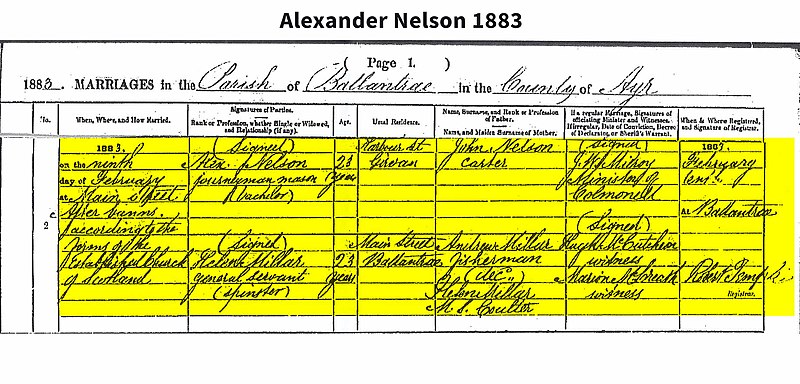 Alexander Nelson 1883
( Page 1. )
1883. MARRIAGES in the Parish of Ballantrae in the County of Ayr
No.
When, Where, and How Married.
Signatures of Parties.
Rank or Profession, whether Single or Widowed, and Relationship (if any).
Age.
Usual Residence.
Name, Surname, and Rank or Profession of Father.
Name, and Maiden Surname of Mother.
If a regular Marriage, Signatures of officiating Minister and Witnesses.
If irregular, Date of Conviction, Decree of Declarator, or Sheriff's Warrant.
When & Where Registered, and Signature of Registrar.
2
1883.
on the ninth
day of February
at Main Street
After banns
according to the
Forms of the
Established Church
of Scotland
(Signed)
Alex. Nelson
journeyman mason
(bachelor)
(Signed)
Helen Millar
general servant
(spinster)
21
years
23
years
Harbour St
Girvan
Main Street
Ballantrae
John Nelson
carter
Andrew Millar
fisherman
(decd)
Helen Millar
M. S. Coulter
(Signed)
Minister of
Colmonell
(Signed)
Hugh McCutcheon
witness
Marion McCreath
witness
1883.
February
at Ballantrae
Robert
Registrar.